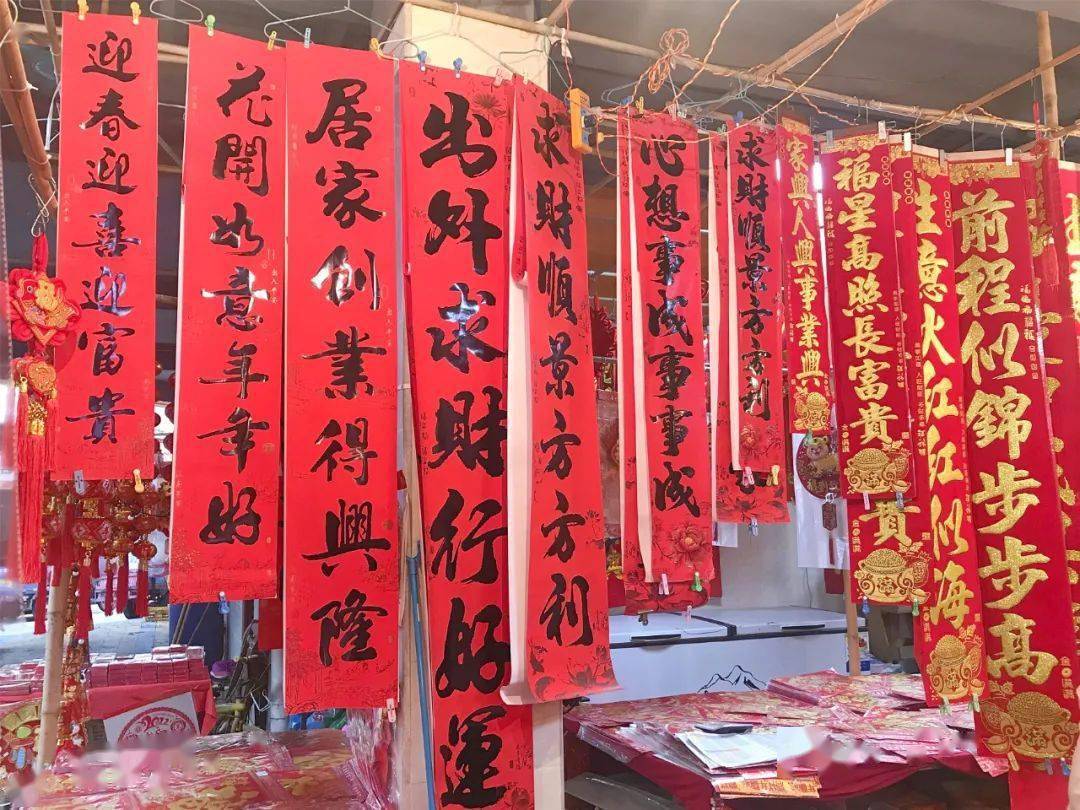 迎春迎喜迎富貴
花開如意年年好
居家創業得興隆
出外求財行好運
求財順景方方利
心想事成事事成
求財順景方方利
家興人興事業興
福星高照長富貴
貴
生意火红红似海
前程似錦步步高
2022